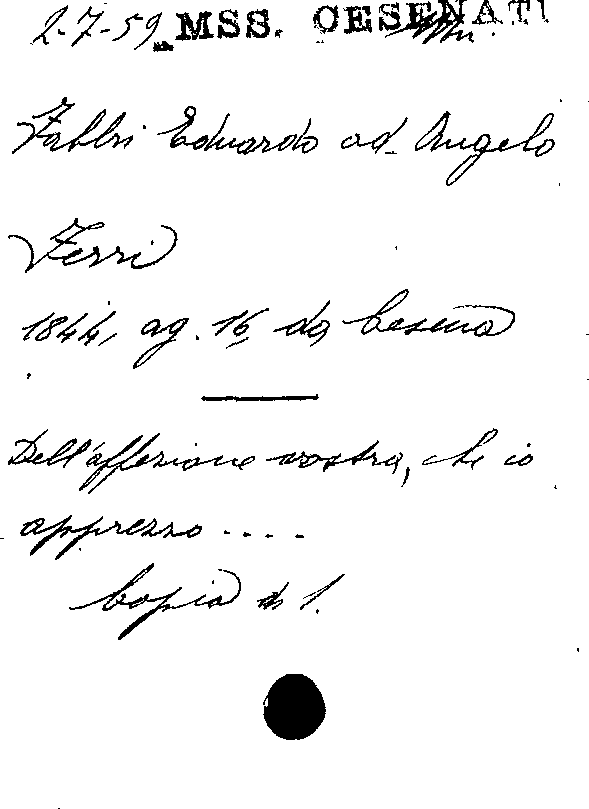 2-7-59 MSS. CESENATI
Fabbri Eduardo ad Angelo
Ferri
1844, ag. 16, da Cesena
Dell'affezione vostra, che io
apprezzo ....
Copia di S.